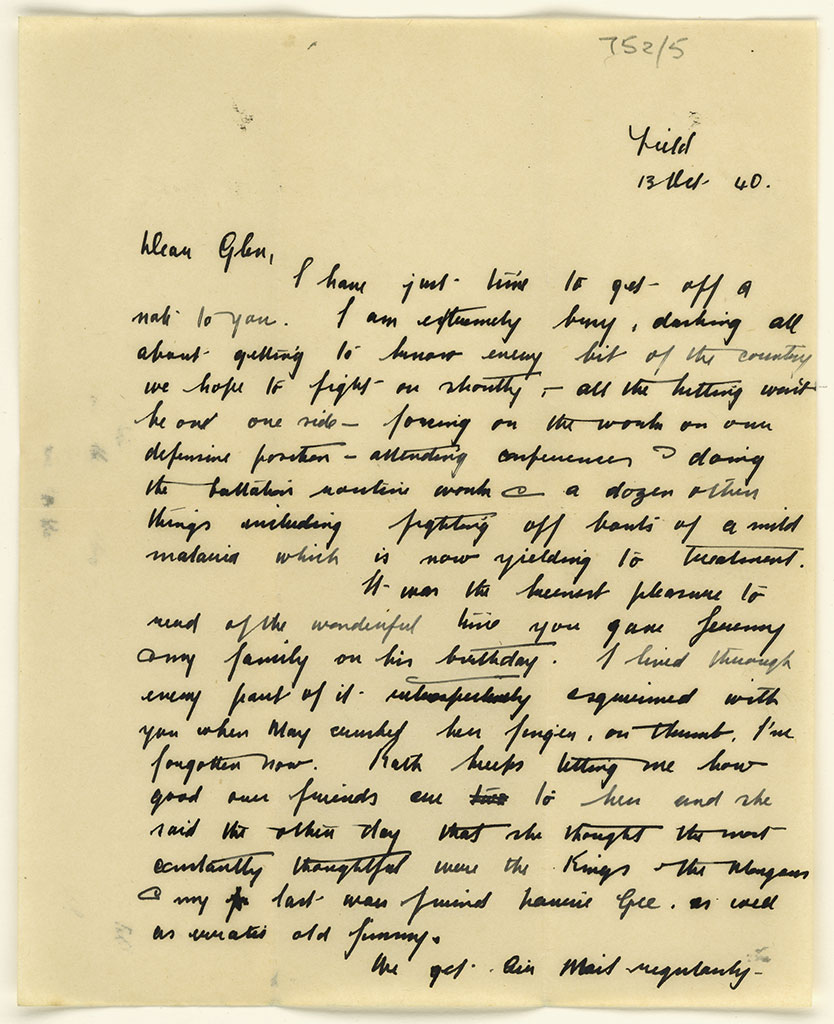 752/5
Field
13 Oct 40.
Dear Glen,
I have just time to get off a
note to you. I am extremely busy, dashing all
about getting to know every bit of the country
we hope to fight on shortly, – all the hitting won't
be one side – forcing on the work on our
defensive position – attending conferences & doing
the battalion routine work & a dozen other
things including fighting off bouts of a mild
malaria which is now yielding to treatment.
It was the keenest pleasure to
read of the wonderful time you gave Jeremy
& my family on his birthday. I lived through
every part of it & squirmed with
you when May crushed her finger, or thumb, I've
forgotten now. Kath keeps telling me how
good our friends are to her and she
said the other day that she thought the most
constantly thoughtful were the Kings & the Morgans
& my last war friend Gee. as well
as erratic old Jimmy.
We get Air Mail regularly –